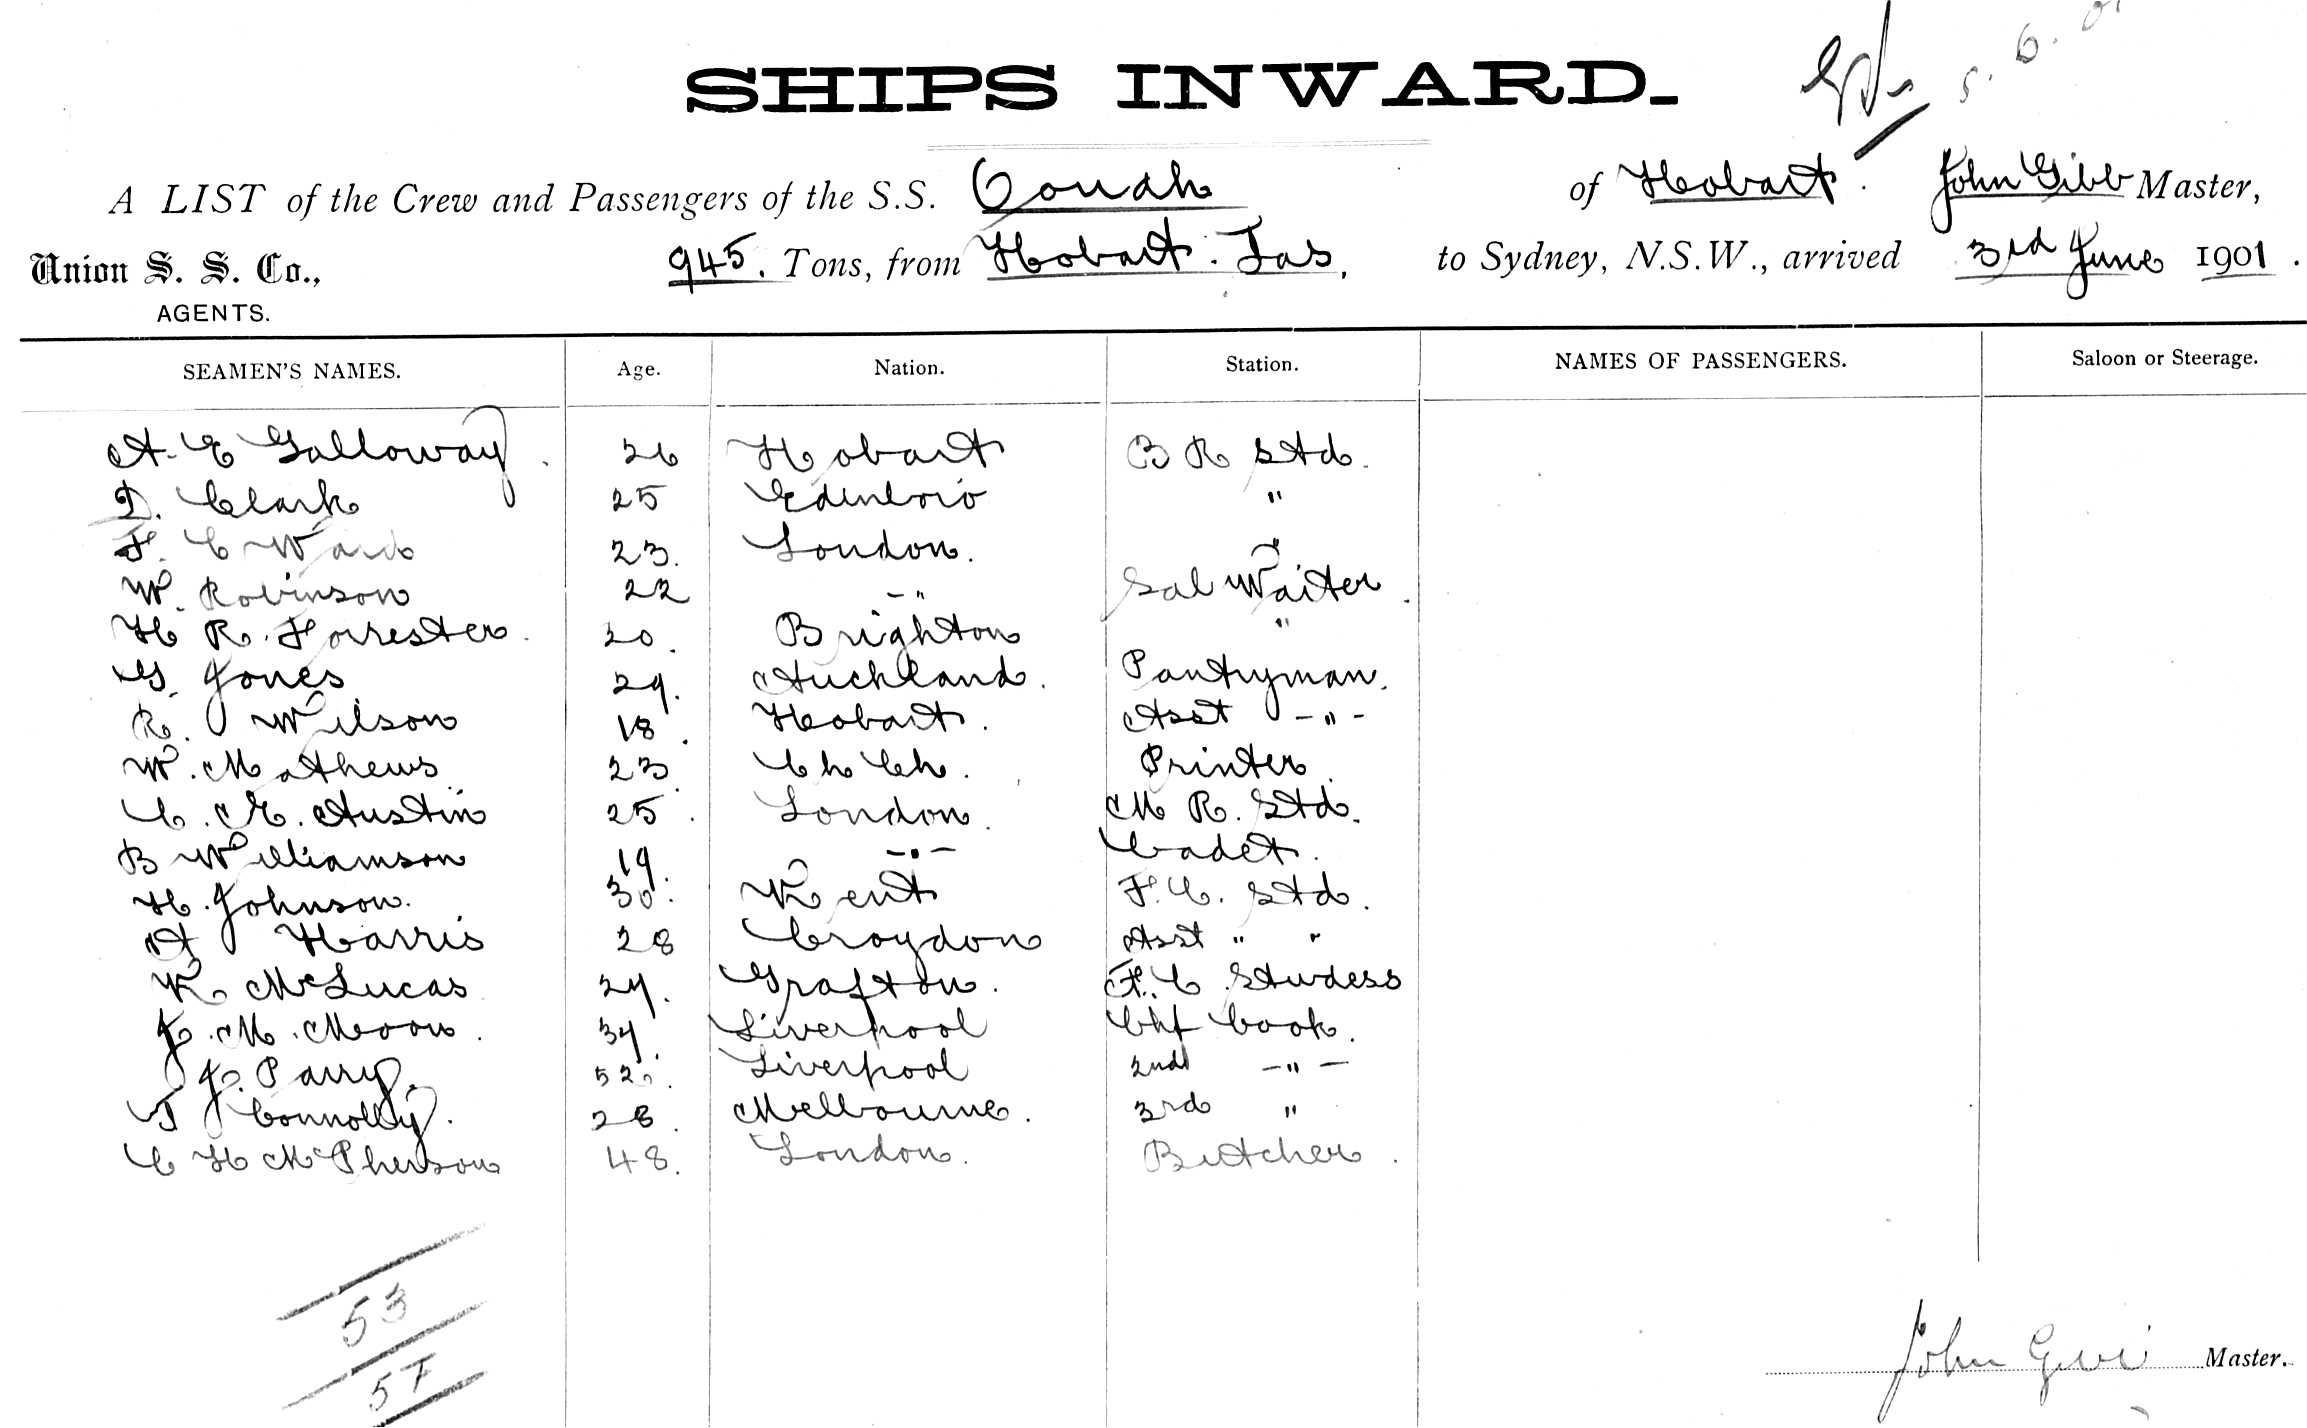 SHIPS INWARD.
5. 6. 01
A LIST of the Crew and Passengers of the S.S. Oonah of Hobart. John Gibb Master,
Union S. S. Co., 945. Tons, from Hobart. Tas, to Sydney, N.S.W., arrived 3rd June 1901.
AGENTS.
SEAMEN'S NAMES. Age. Nation. Station. NAMES OF PASSENGERS. Saloon or Steerage.
A. E Galloway. 26 Hobart B R Std.
D. Clark 25 Edinboro "
F. C Ward 23. London. "
W. Robinson 22 - " Sal Waiter.
H R. Forrester. 20. Brighton "
G. Jones 29. Auckland. Pantryman.
R. Wilson 18. Hobart. Asst - " -
W. Mathews 23. Ch Ch. Printer.
C. E. Austin 25. London. M R. Std.
B Williamson 19. - " - Cadet.
H. Johnson. 30. Kent F. C. Std.
A Harris 28 Croydon Asst " "
K McLucas 29. Grafton. F. C. Stwdess
J. M. Moon. 34. Liverpool Chf Cook.
J. Parry. 52. Liverpool 2nd - " -
T Connolly. 28. Melbourne. 3rd "
C H McPherson 48. London. Butcher.
53
57
John Gibb Master.